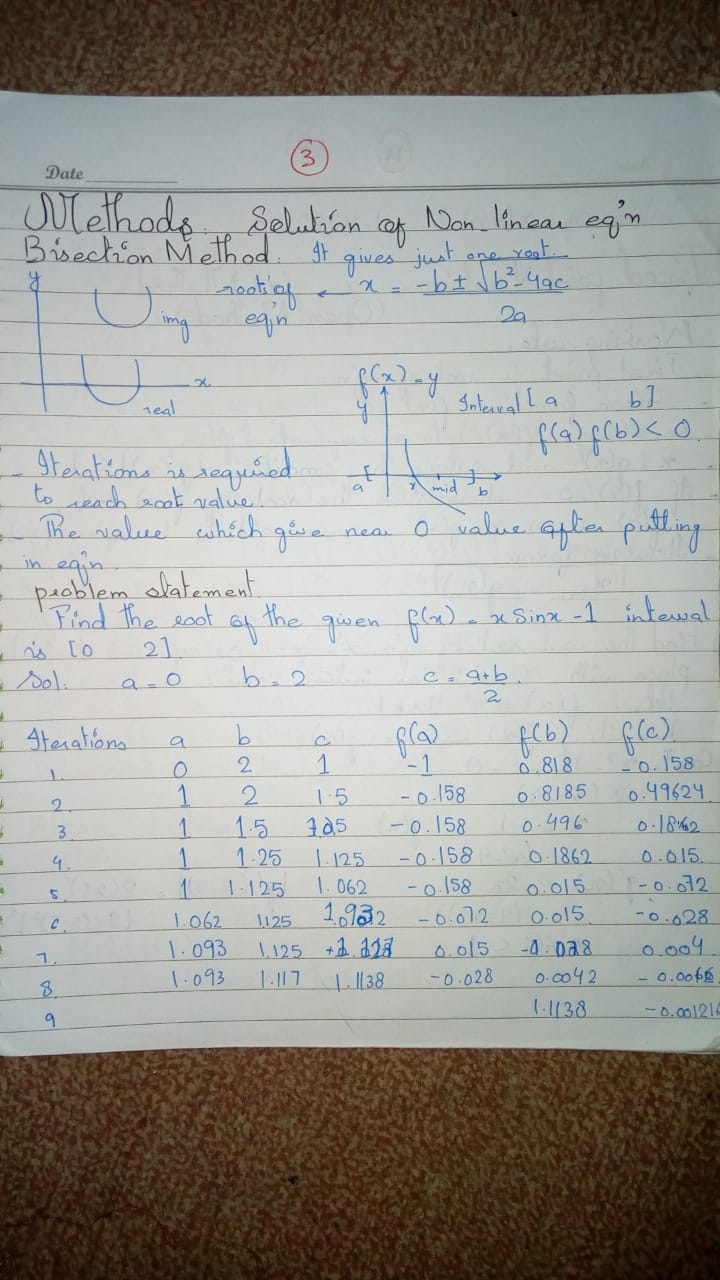 3
Date
Methods. Solution of Non-linear eq'n
Bisection Method. It gives just one root.
y
img
roots of eq'n ← x = -b ± √b² - 4ac / 2a
x
real
f(x) = y
y
Interval [a b]
f(a) f(b) < 0
a [ r mid ] b
- Iterations is required
to reach root value.
- The value which give near 0 value after putting
in eq'n.
problem statement.
Find the root of the given f(x) = x Sinx -1 interval
is [0 2]
Sol. a = 0 b = 2 c = a+b / 2
Iterations a b c f(a) f(b) f(c)
1. 0 2 1 -1 0.818 -0.158
2. 1 2 1.5 -0.158 0.8185 0.49624
3 1 1.5 -0.158 0.496
4. 1 1.25 1.125 -0.158 0.1862 0.015
5. 1 1.125 1.062 -0.158 0.015 -0.072
1.062 1.125 -0.072 0.015 -0.028
7. 1.093 1.125 0.015 0.004
8. 1.093 1.117 1.1138 -0.028 0.0042
9 1.1138 -0.001216